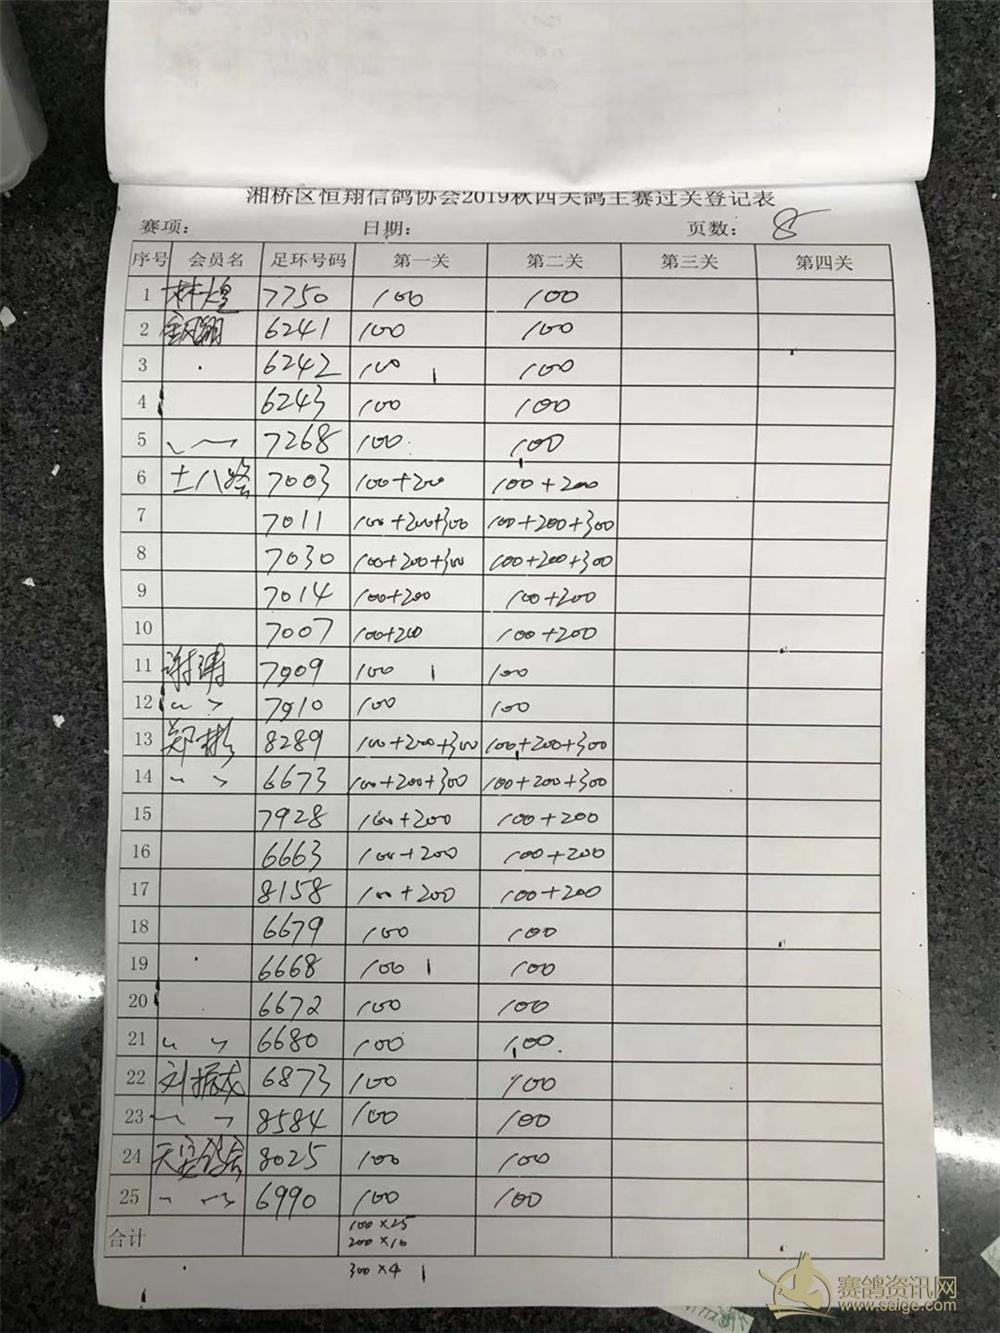 湘桥区恒翔信鸽协会2019秋四关鸽王赛过关登记表
赛项： 日期： 页数：8
序号 会员名 足环号码 第一关 第二关 第三关 第四关
1 林煌 7750 100 100
2 6241 100 100
3 6242 100 100
4 6243 100 100
5 7268 100 100
6 土八路 7003 100+200 100+200
7 7011 100+200+300 100+200+300
8 7030 100+200+300 100+200+300
9 7014 100+200 100+200
10 7007 100+200 100+200
11 7909 100 100
12 〃 7910 100 100
13 郑彬 8289 100+200+300 100+200+300
14 〃 6673 100+200+300 100+200+300
15 7928 100+200 100+200
16 6663 100+200 100+200
17 8158 100+200 100+200
18 6679 100 100
19 6668 100 100
20 6672 100 100
21 〃 6680 100 100
22 刘振龙 6873 100 100
23 〃 8584 100 100
24 8025 100 100
25 〃 6990 100 100
合计 100×25
200×10
300×4
赛鸽资讯网
www.saige.com